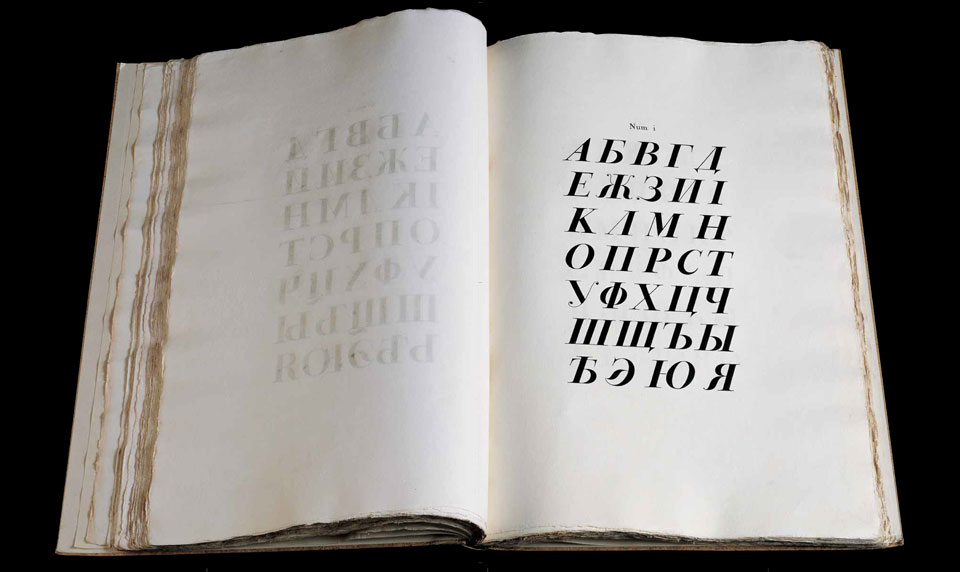 Num i
АБВГД
ЕЖЗИІ
КЛМН
ОПРСТ
УФХЦЧ
ШЩЪЫ
ѢЭЮЯ